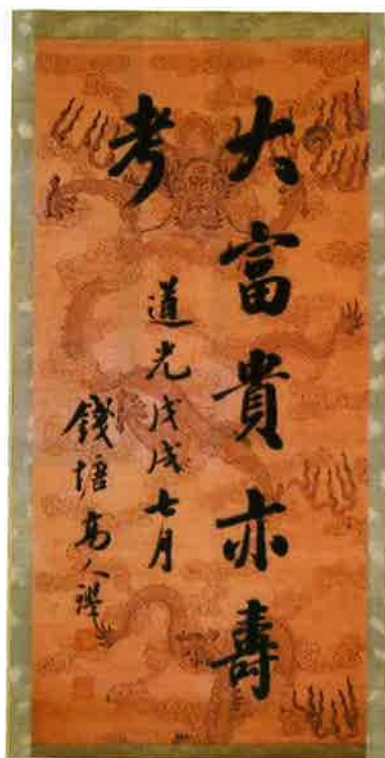 大富貴亦壽
考
道光戊戌七月
錢塘高人鑑